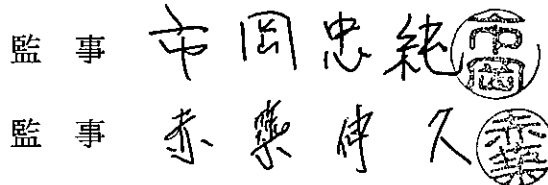 監事 市岡忠純 市岡
監事 赤藥伸久 赤藥